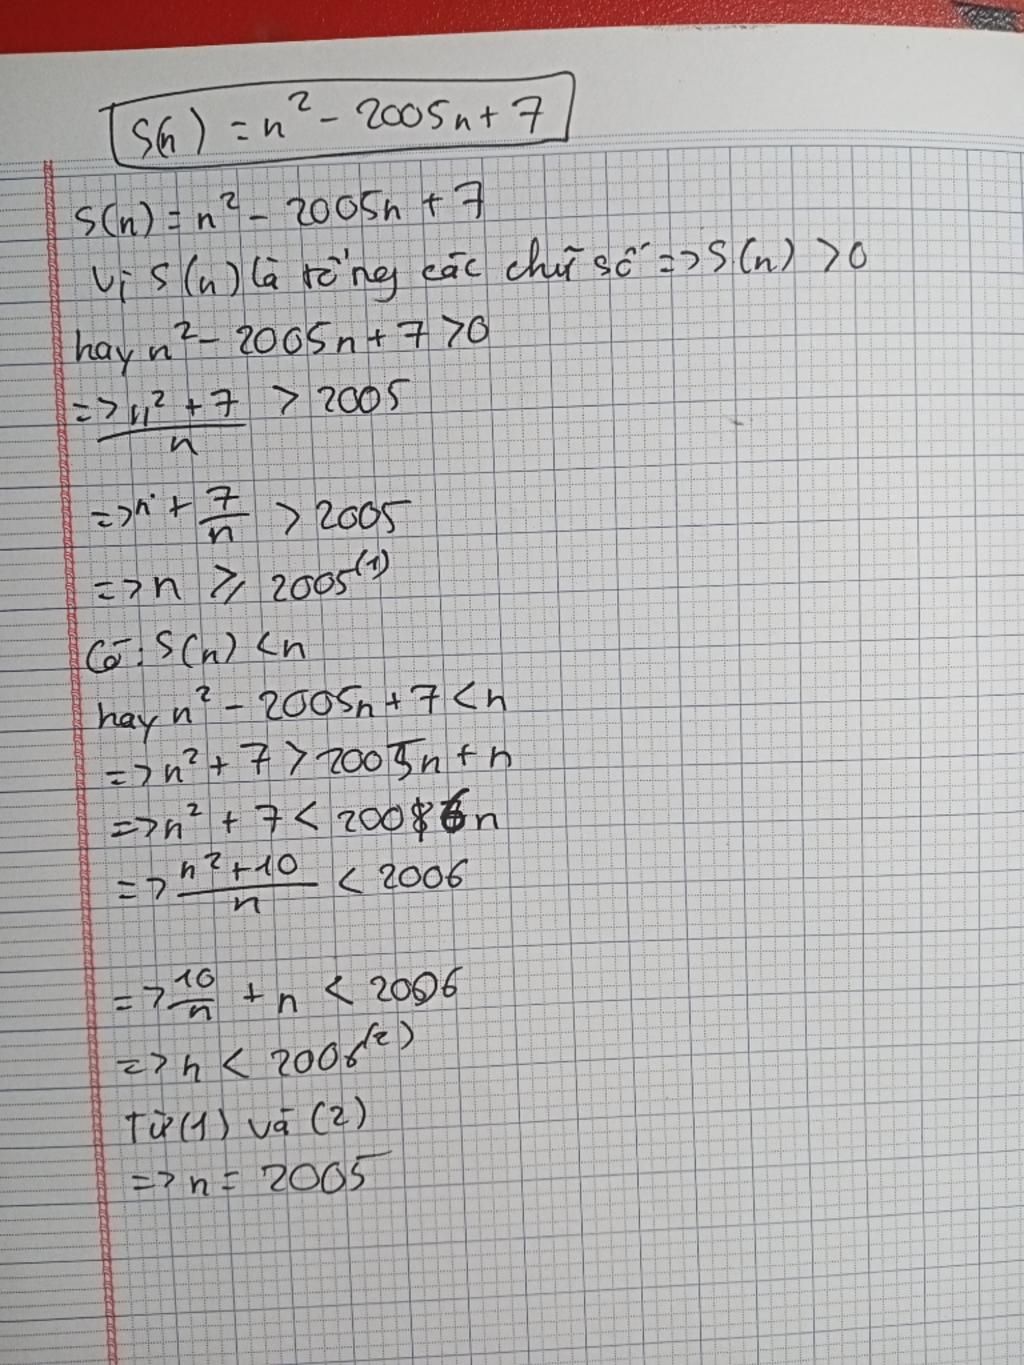 S(n) = n² - 2005n + 7
S(n) = n² - 2005n + 7
Vì S(n) là tổng các chữ số => S(n) > 0
hay n² - 2005n + 7 > 0
=> n² + 7 / n > 2005
=> n + 7/n > 2005
=> n ⩾ 2005 (1)
Có: S(n) < n
hay n² - 2005n + 7 < n
=> n² + 7 > 2005n + n
=> n² + 7 < 2006n
=> n² + 10 / n < 2006
=> 10/n + n < 2006
=> n < 2006 (2)
Từ (1) và (2)
=> n = 2005